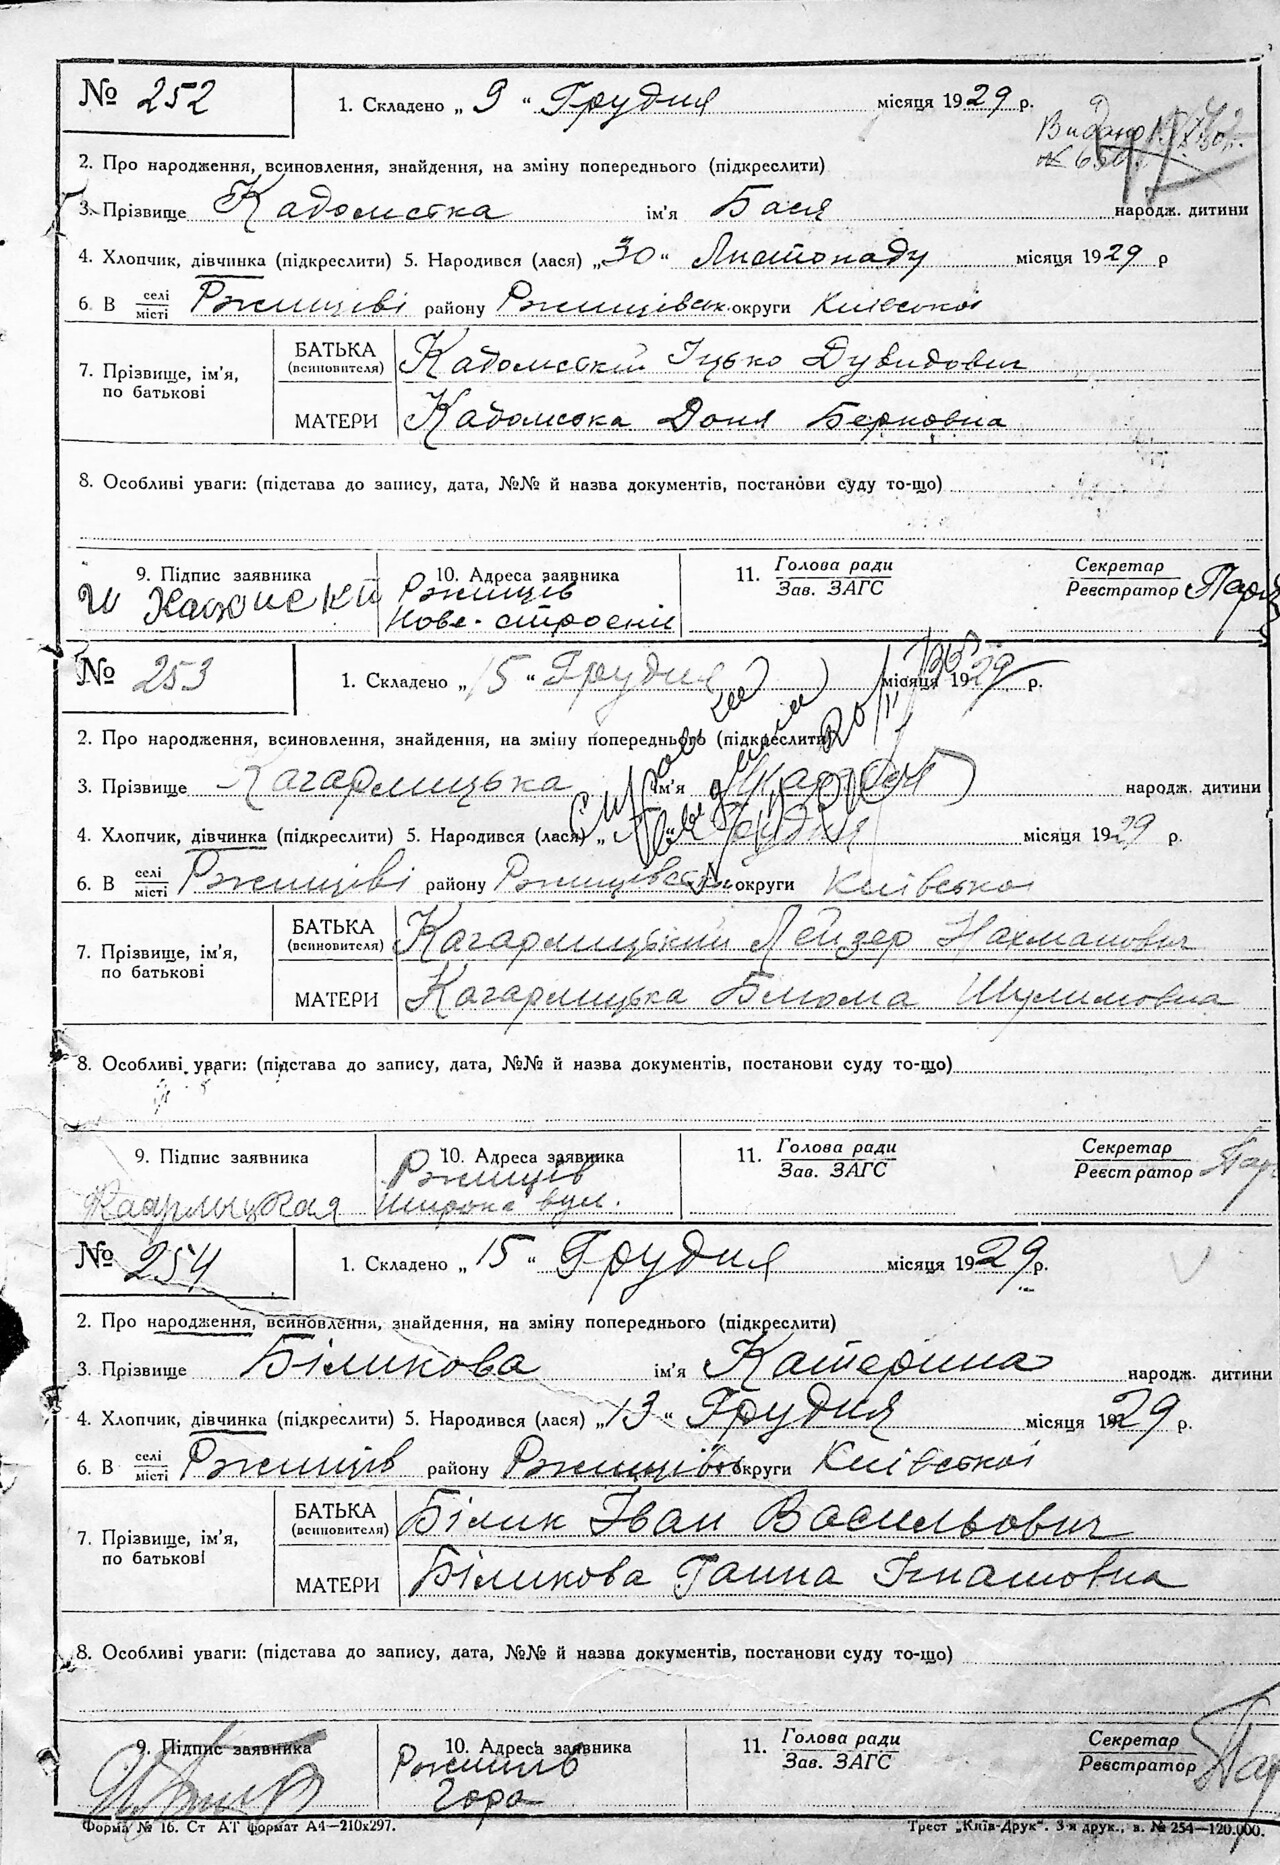 № 252 1. Складено „ 9 “ Грудня місяця 1929 р.
Видано
2. Про народження, всиновлення, знайдення, на зміну попереднього (підкреслити)
3. Прізвище Кадомська ім'я Бася народж. дитини
4. Хлопчик, дівчинка (підкреслити) 5. Народився (лася) „30“ Листопаду місяця 1929 р
6. В селі місті Ржищіві району Ржищівськ. округи Київської
7. Прізвище, ім'я, по батькові
БАТЬКА (всиновителя) Кадомський Іцько Дувидович
МАТЕРИ Кадомська Доня Берковна
8. Особливі уваги: (підстава до запису, дата, №№ й назва документів, постанови суду то-що)
9. Підпис заявника 10. Адреса заявника 11. Голова ради Зав. ЗАГС Секретар Реєстратор
Ржищів
Ново-строєній
№ 253 1. Складено „ 15 “ Грудня місяця 1929 р.
2. Про народження, всиновлення, знайдення, на зміну попереднього (підкреслити)
3. Прізвище Кагарлицька ім'я народж. дитини
4. Хлопчик, дівчинка (підкреслити) 5. Народився (лася) „ Грудня місяця 1929 р.
6. В селі місті Ржищіві району Ржищівськ округи Київської
7. Прізвище, ім'я, по батькові
БАТЬКА (всиновителя) Кагарлицький Лейзер Нахманович
МАТЕРИ Кагарлицька Блюма Шулимовна
8. Особливі уваги: (підстава до запису, дата, №№ й назва документів, постанови суду то-що)
9. Підпис заявника 10. Адреса заявника 11. Голова ради Зав. ЗАГС Секретар Реєстратор
Ржищів
Широка вул.
№ 254 1. Складено „ 15 “ Грудня місяця 1929 р.
2. Про народження, всиновлення, знайдення, на зміну попереднього (підкреслити)
3. Прізвище Біликова ім'я Катерина народж. дитини
4. Хлопчик, дівчинка (підкреслити) 5. Народився (лася) „13“ Грудня місяця 1929 р.
6. В селі місті Ржищів району Ржищівськ округи Київської
7. Прізвище, ім'я, по батькові
БАТЬКА (всиновителя) Білик Іван Васильович
МАТЕРИ Біликова Ганна Ігнатовна
8. Особливі уваги: (підстава до запису, дата, №№ й назва документів, постанови суду то-що)
9. Підпис заявника 10. Адреса заявника 11. Голова ради Зав. ЗАГС Секретар Реєстратор
Ржищів
Гора
Форма № 16. Ст АТ формат А4—210х297. Трест „Київ-Друк“. 3-я друк., в. № 254—120.000.